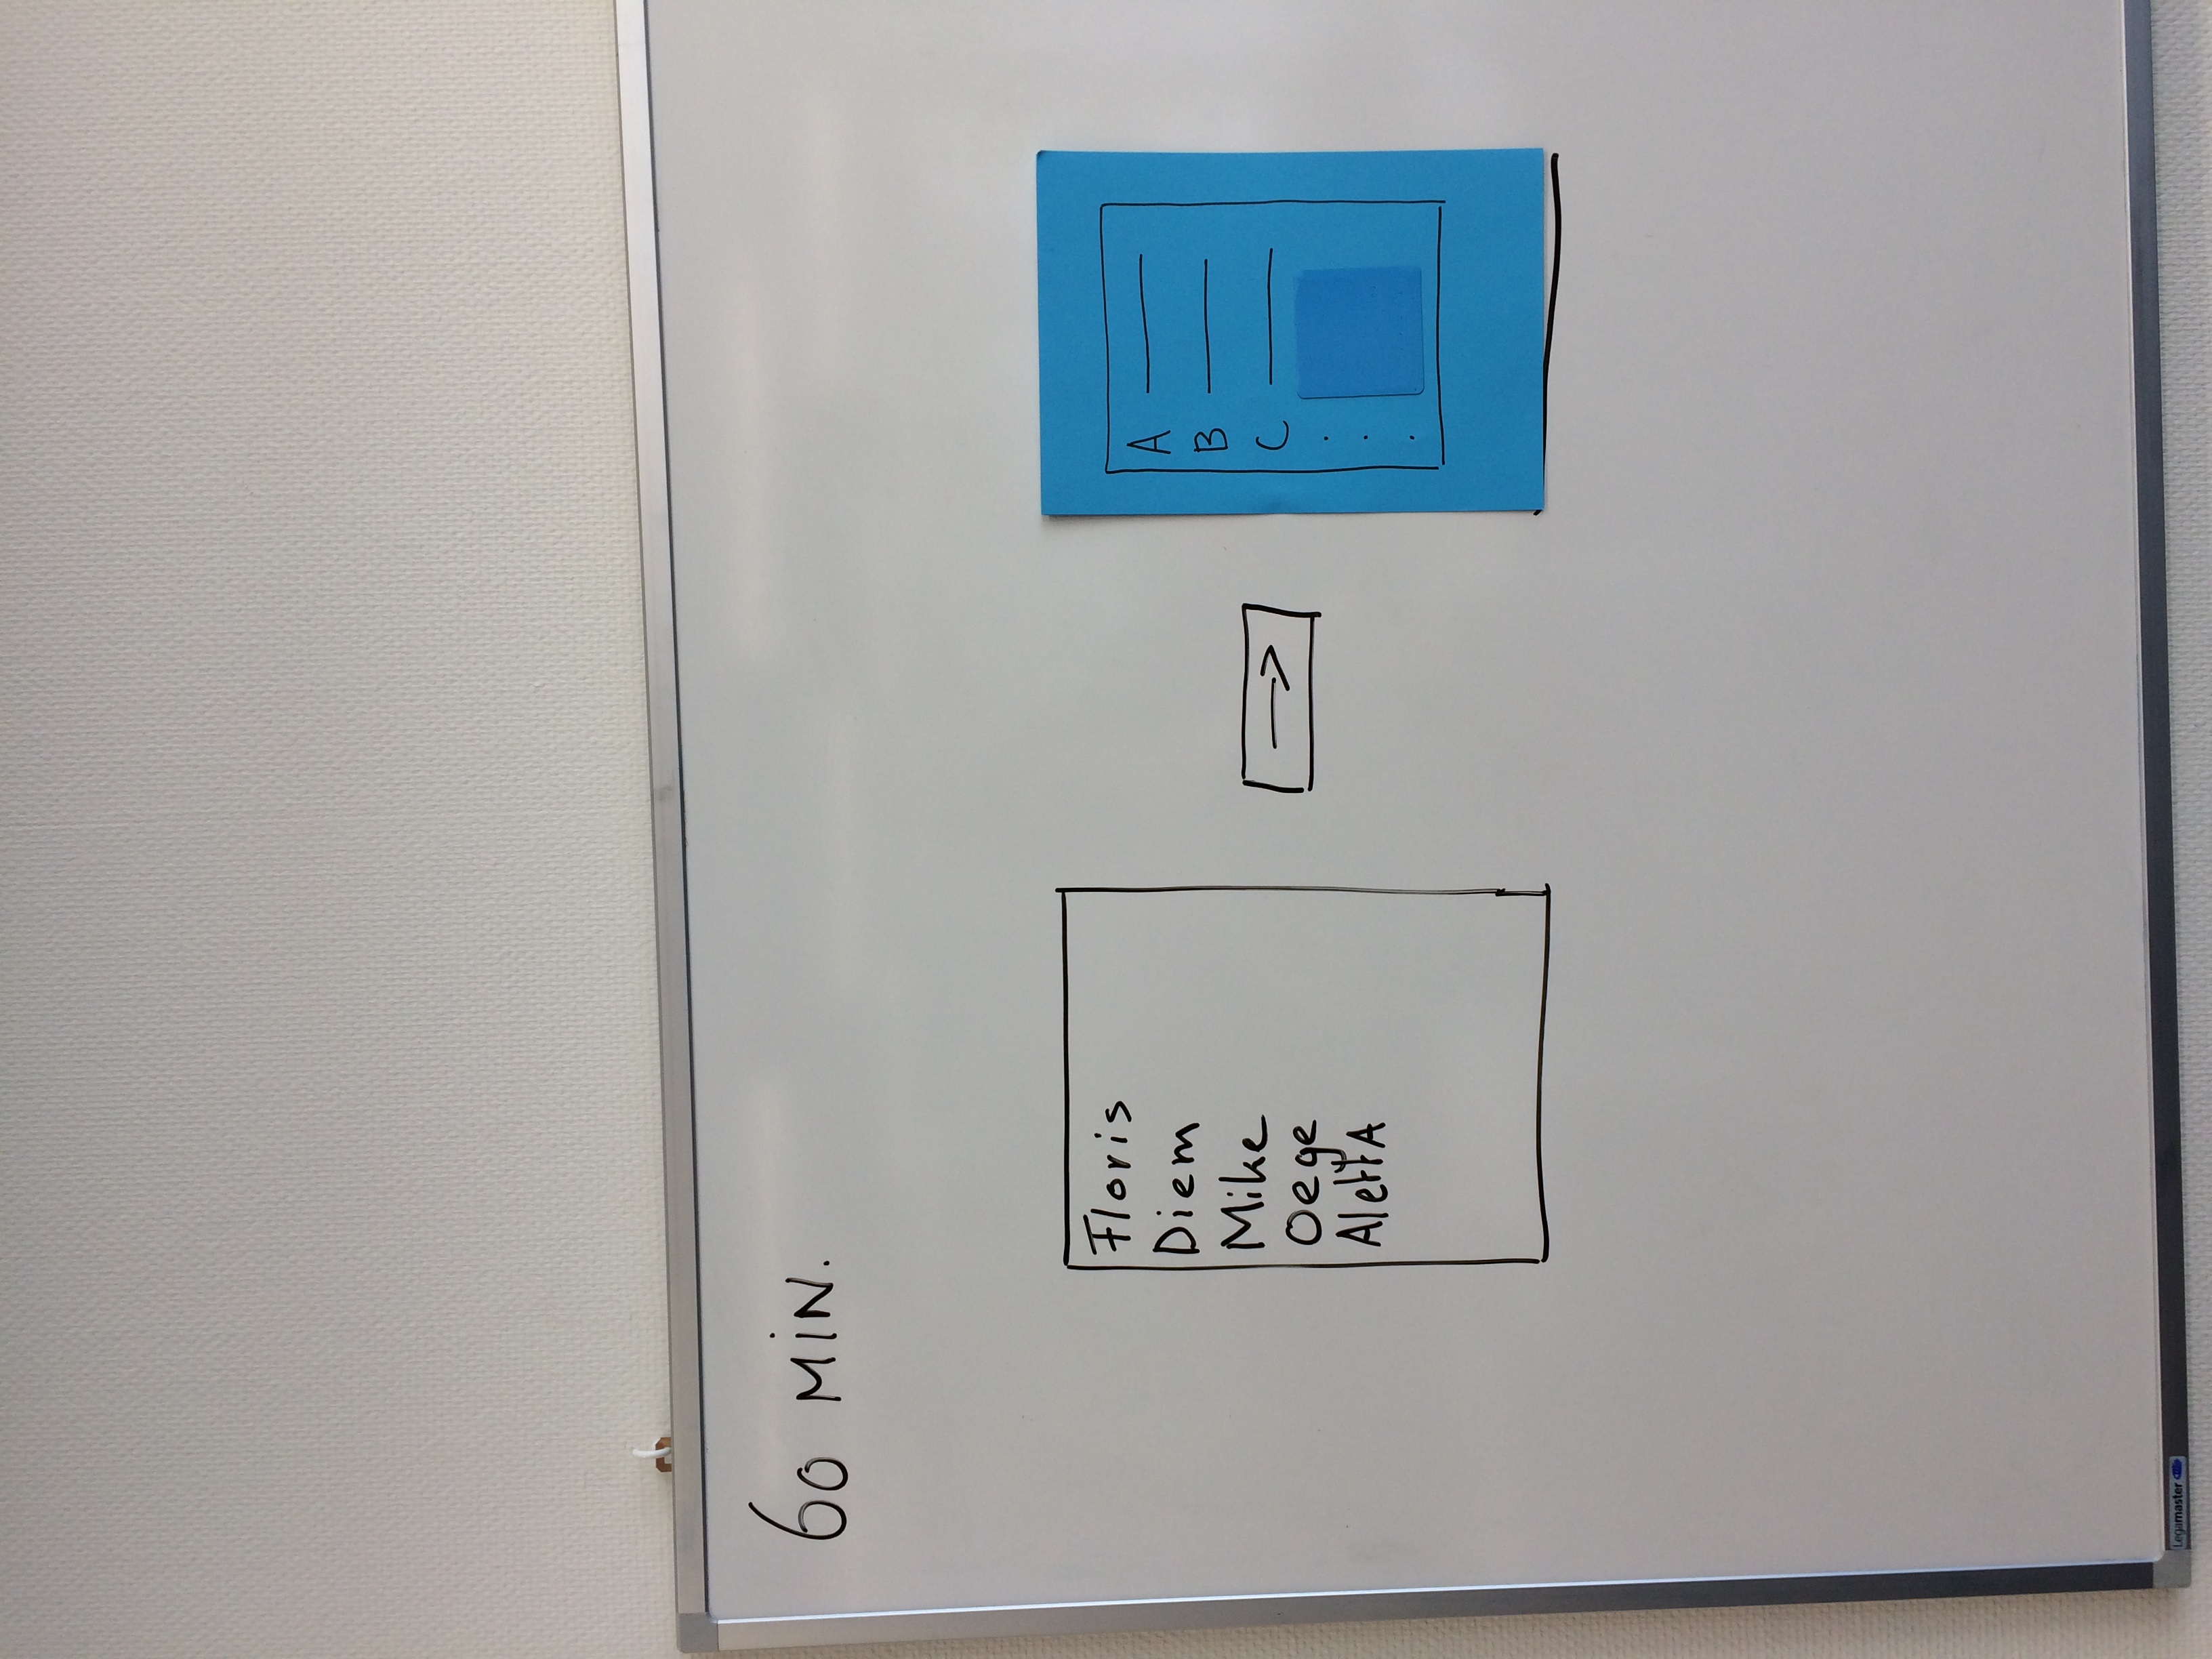 60 MIN.
Floris
Diem
Mike
Oege
AlettA
A
B
C
Legamaster